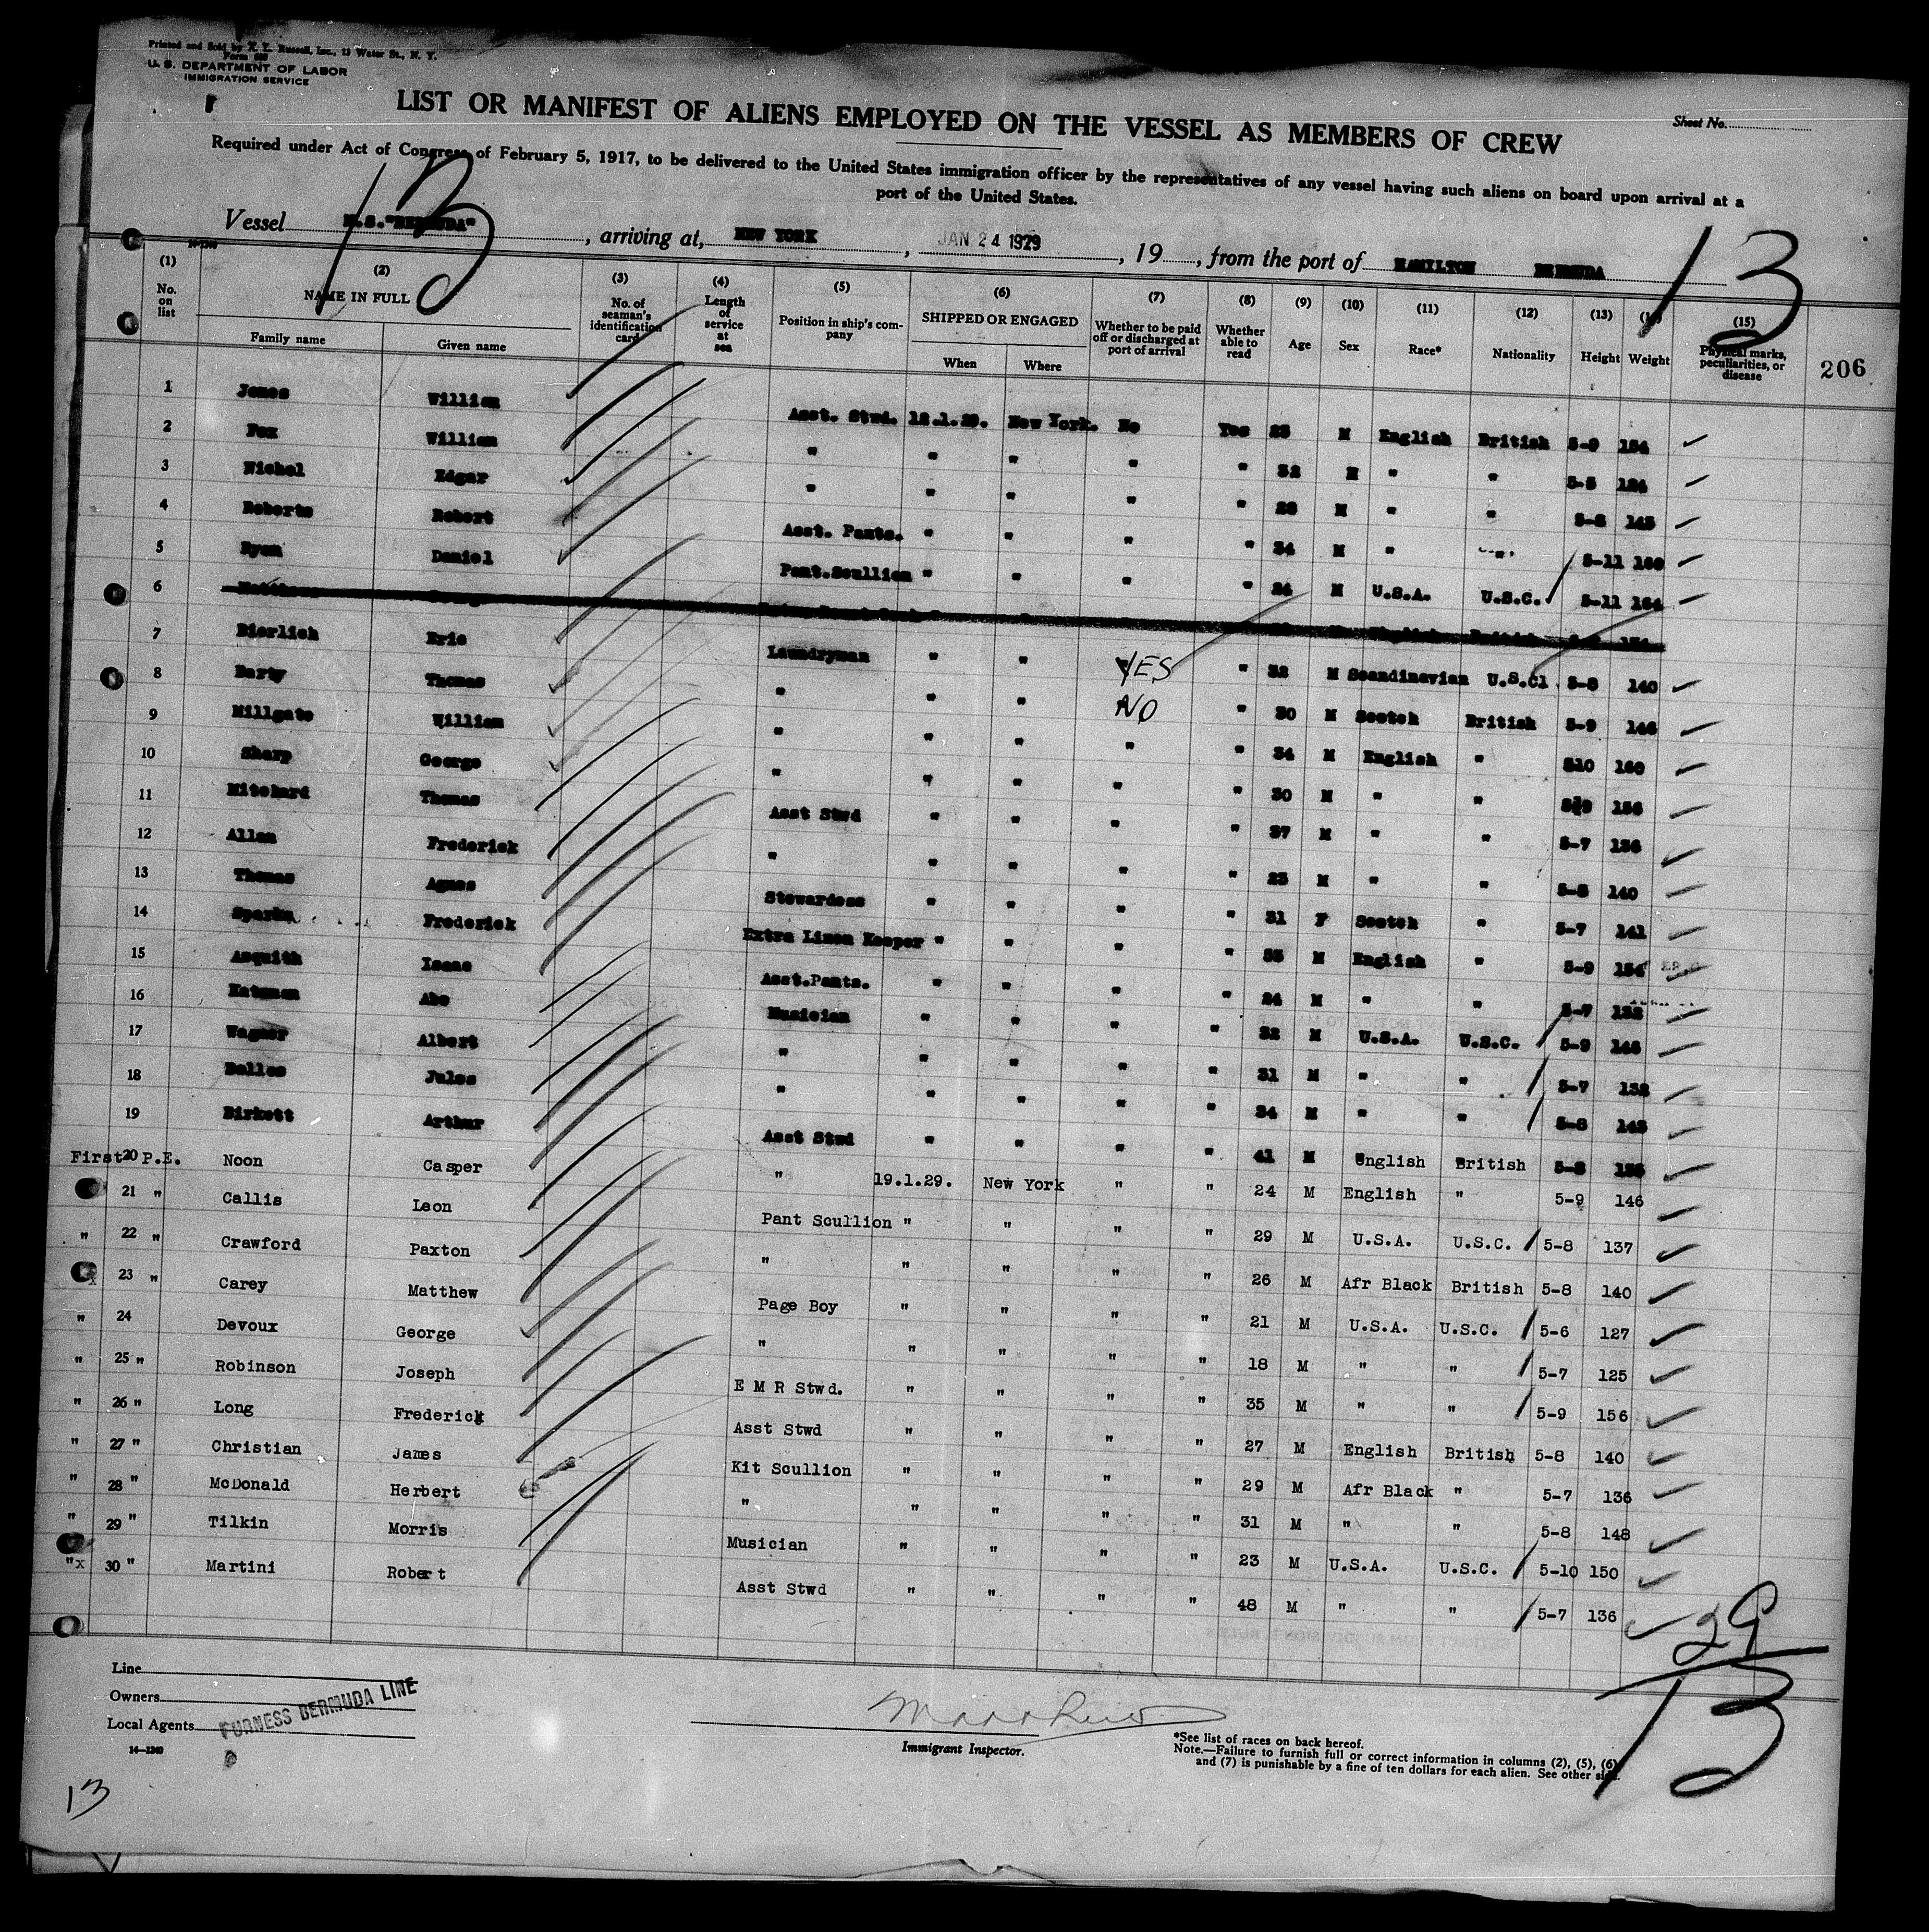 Printed and Sold by F. L. Russell, Inc., 13 Water St., N. Y.
U. S. DEPARTMENT OF LABOR
IMMIGRATION SERVICE
Sheet No.
LIST OR MANIFEST OF ALIENS EMPLOYED ON THE VESSEL AS MEMBERS OF CREW
Required under Act of Congress of February 5, 1917, to be delivered to the United States immigration officer by the representatives of any vessel having such aliens on board upon arrival at a
port of the United States.
13
Vessel M.S."BERMUDA", arriving at, NEW YORK, JAN 24 1929, 19, from the port of HAMILTON BERMUDA
13
(1) No. on list (2) NAME IN FULL Family name Given name (3) No. of seaman's identification card (4) Length of service at sea (5) Position in ship's company (6) SHIPPED OR ENGAGED When Where (7) Whether to be paid off or discharged at port of arrival (8) Whether able to read (9) Age (10) Sex (11) Race* (12) Nationality (13) Height Weight (15) Physical marks, peculiarities, or disease
206
1 Jones William Asst. Stwd. 12.1.29. New York. No Yes 23 M English British 5-9 154
2 Fox William " " " " " 32 M " " 5-5 124
3 Nichol Edgar " " " " " 28 M " " 5-8 145
4 Roberts Robert Asst. Pants. " " " " 34 M " " 5-11 160
5 Ryan Daniel Pant.Scullion " " " " 24 M U.S.A. U.S.C. 5-11 164
6
7 Bierlich Eric Laundryman " " YES " 32 M Scandinavian U.S.Cl 5-8 140
8 Barty Thomas " " " NO " 30 M Scotch British 5-9 146
9 Millgate William " " " " " 34 M English " 510 160
10 Sharp George " " " " " 30 M " " 156
11 Mitchard Thomas Asst Stwd " " " " 37 M " " 5-7 136
12 Allan Frederick " " " " " 23 M " " 5-8 140
13 Thomas Agnes Stewardess " " " " 31 F Scotch " 5-7 141
14 Sparks Frederick Extra Linen Keeper " " " " 35 M English " 5-9 154
15 Asquith Isaac Asst.Pants. " " " " 24 M " " 5-7 132
16 Katzman Abe Musician " " " " 32 M U.S.A. U.S.C. 5-9 148
17 Wagner Albert " " " " " 31 M " " 5-7 132
18 Delles Jules " " " " " 34 M " " 5-8 145
19 Birkett Arthur Asst Stwd " " " " 41 M English British 5-8
First 20 P.E. Noon Casper " 19.1.29. New York " " 24 M English " 5-9 146
21 " Callis Leon Pant Scullion " " " " 29 M U.S.A. U.S.C. 5-8 137
" 22 " Crawford Paxton " " " " " 26 M Afr Black British 5-8 140
x 23 " Carey Matthew Page Boy " " " " 21 M U.S.A. U.S.C. 5-6 127
" 24 Devoux George " " " " " 18 M " " 5-7 125
" 25 " Robinson Joseph E M R Stwd. " " " " 35 M " " 5-9 156
" 26 " Long Frederick Asst Stwd " " " " 27 M English British 5-8 140
" 27 " Christian James Kit Scullion " " " " 29 M Afr Black " 5-7 136
" 28 " McDonald Herbert " " " " " 31 M " " 5-8 148
" 29 " Tilkin Morris Musician " " " " 23 M U.S.A. U.S.C. 5-10 150
"x 30 " Martini Robert Asst Stwd " " " " 48 M " " 5-7 136
29
13
Line
Owners
Local Agents
FURNESS BERMUDA LINE
14—1240
Immigrant Inspector.
*See list of races on back hereof.
Note.—Failure to furnish full or correct information in columns (2), (5), (6)
and (7) is punishable by a fine of ten dollars for each alien. See other side.
13